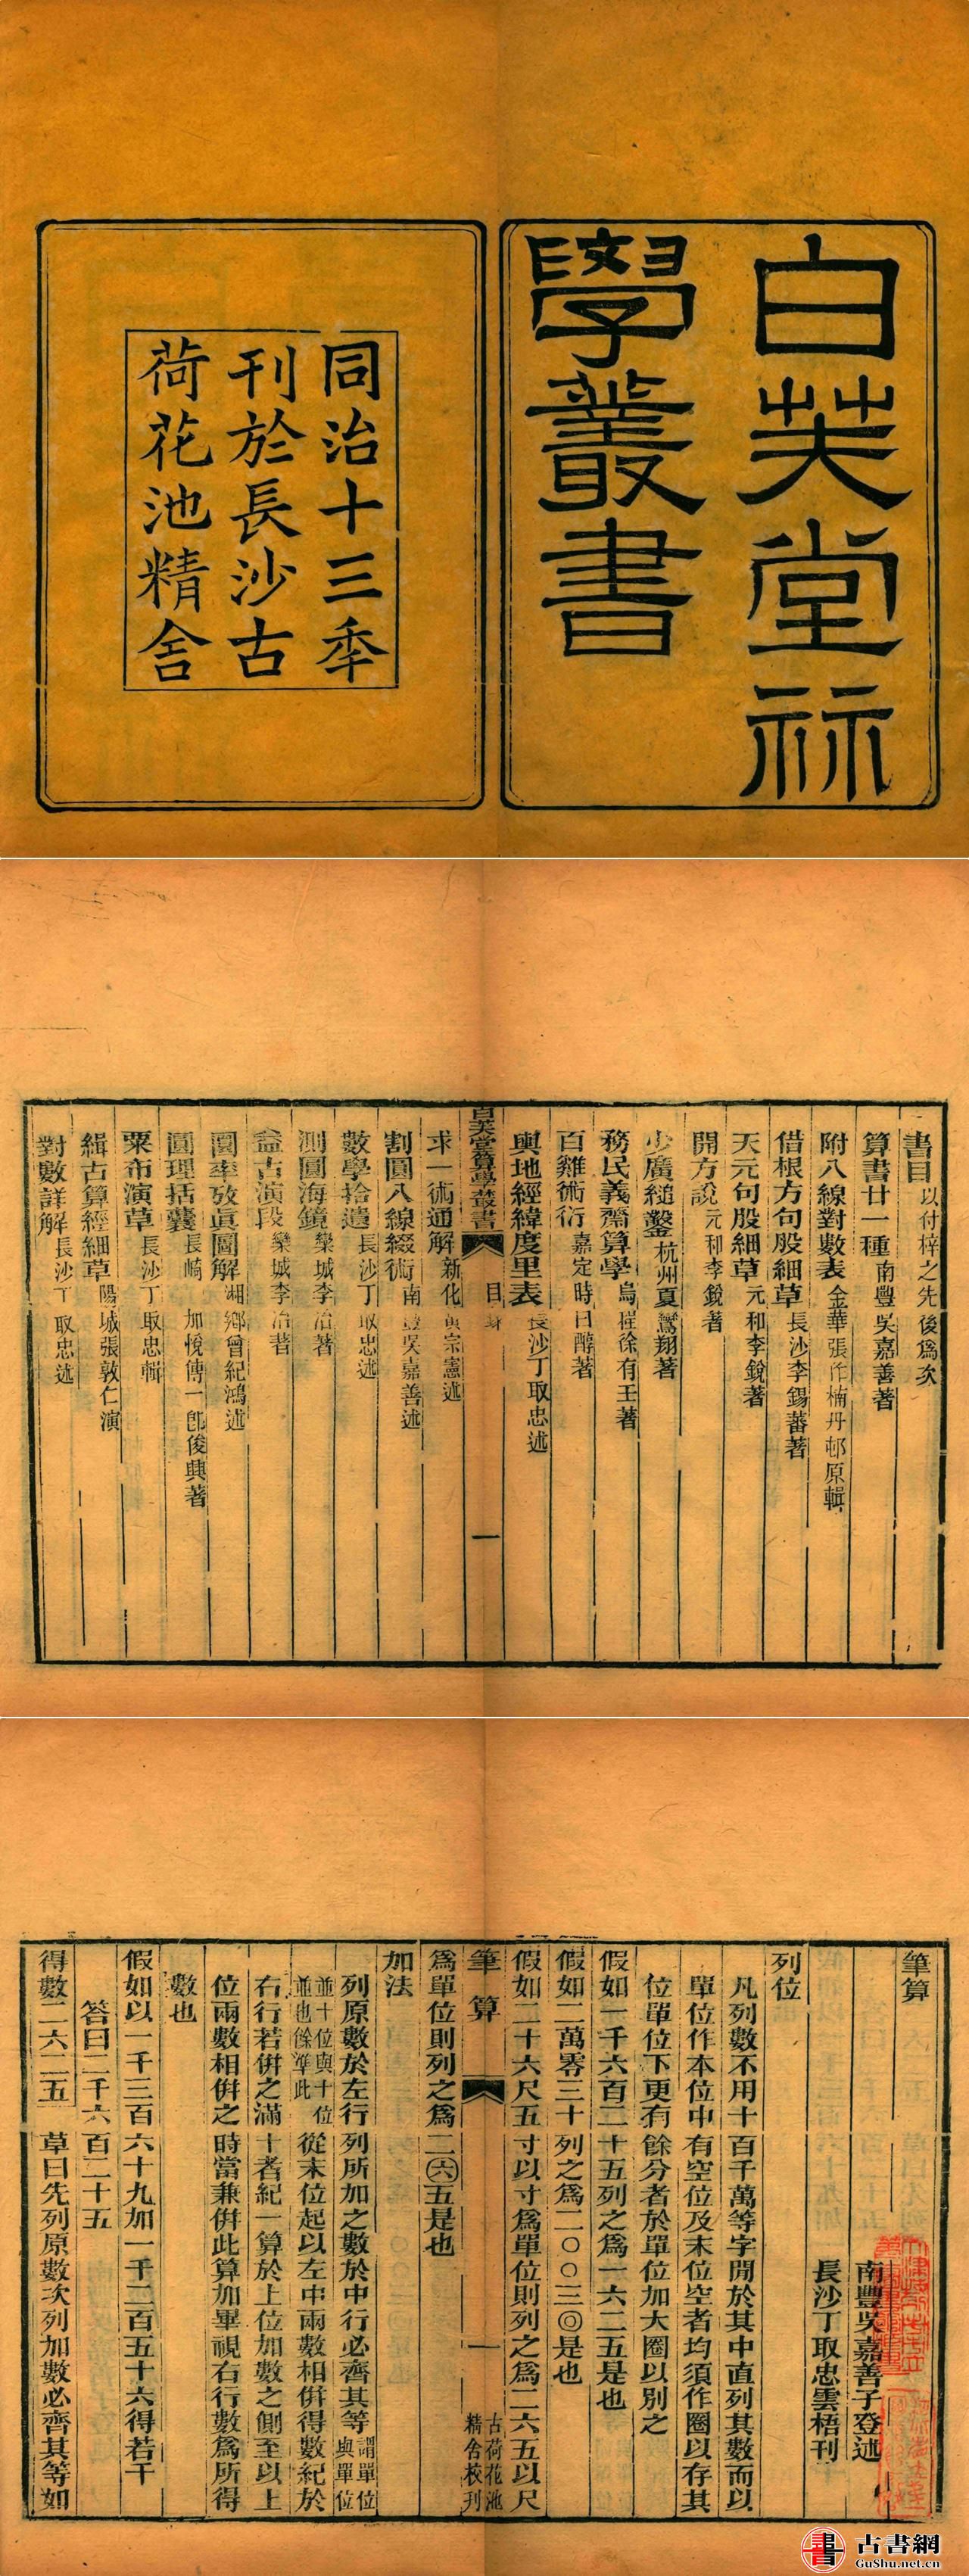 白芙堂祘
學叢書
同治十三秊
刊於長沙古
荷花池精舍
書目以付梓之先後爲次
算書廿一種南豐吳嘉善著
附八線對數表金華張作楠丹邨原輯
借根方句股細草長沙李錫蕃著
天元句股細草元和李銳著
開方說元和李銳著
少廣縋鑿杭州夏鸞翔著
務民義齋算學烏程徐有壬著
百雞術衍嘉定時曰醇著
輿地經緯度里表長沙丁取忠述
白芙堂算學叢書 目錄 一
求一術通解新化黃宗憲述
割圓八線綴術南豐吳嘉善述
數學拾遺長沙丁取忠述
測圓海鏡欒城李冶著
益古演段欒城李冶著
圜率攷眞圖解湘鄉曾紀鴻述
圓理括囊長崎 加悅傳一郎俊興著
粟布演草長沙丁取忠輯
緝古算經細草陽城張敦仁演
對數詳解長沙丁取忠述
筆算
南豐吳嘉善子登述
長沙丁取忠雲梧刊
列位
凡列數不用十百千萬等字開於其中直列其數而以
單位作本位中有空位及末位空者均須作圈以存其
位單位下更有餘分者於單位加大圈以別之
假如一千六百二十五列之爲一六二五是也
假如二萬零三十列之爲二〇〇三◎是也
假如二十六尺五寸以寸爲單位則列之爲二六五以尺
筆算 一 古荷花池精舍校刊
爲單位則列之爲二㊅五是也
加法
列原數於左行列所加之數於中行必齊其等謂單位與單位
並十位與十位並也餘準此從末位起以左中兩數相倂得數紀於
右行若倂之滿十者紀一算於上位加數之側至以上
位兩數相倂之時當兼倂此算加畢視右行數爲所得
數也
假如以一千三百六十九加一千二百五十六得若干
答曰二千六百二十五
得數二六二五 草曰先列原數次列加數必齊其等如
古書網
GuShu.net.cn